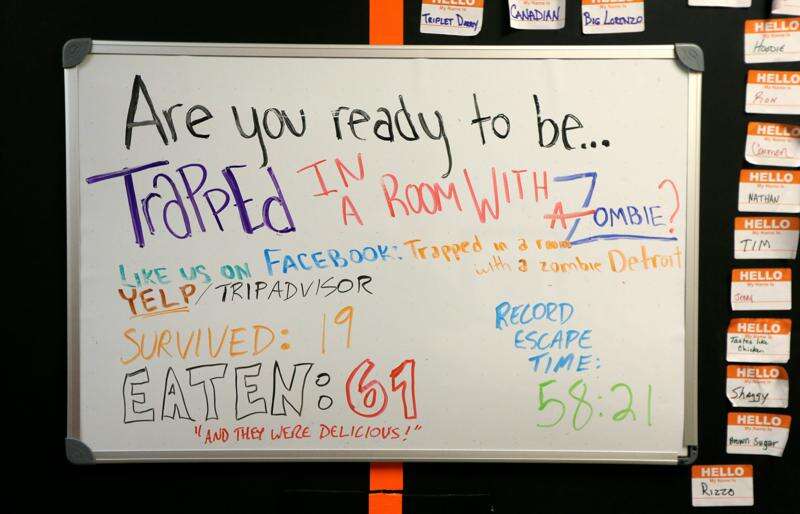 HELLO
My Name Is
TRIPLET DADDY
CANADIAN
BIG LORENZO
Are you ready to be...
TRAPPEd IN A ROOM WITH A ZOMBIE?
LIKE US ON FACEBOOK: Trapped in a room
with a zombie Detroit
YELP/TRIPADVISOR
SURVIVED: 19
EATEN: 61
"AND THEY WERE DELICIOUS!"
RECORD
ESCAPE
TIME:
58:21
HELLO
My Name Is
HOODIE
HELLO
My Name Is
RON
HELLO
My Name Is
Carmen
HELLO
My Name Is
NATHAN
HELLO
My Name Is
TIM
HELLO
My Name Is
HELLO
My Name Is
Tastes like
Chicken
HELLO
My Name Is
Shaggy
HELLO
My Name Is
Brown Sugar
HELLO
My Name Is
RIZZO